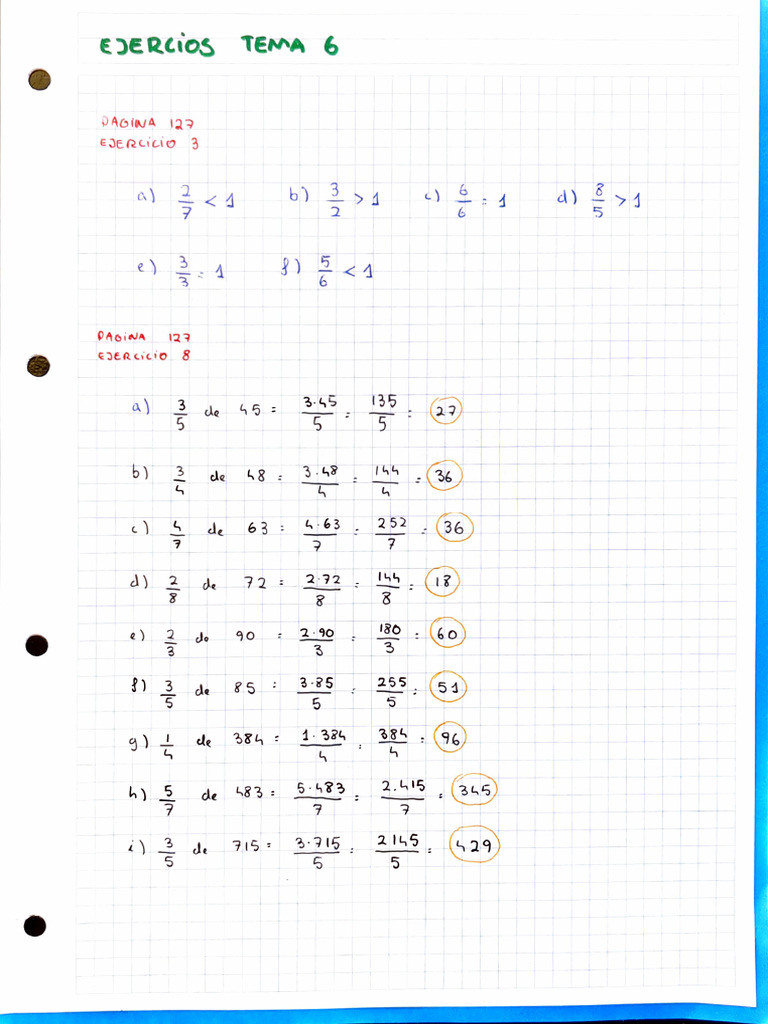 EJERCIOS TEMA 6
PAGINA 127
EJERCICIO 3
a) 2/7 < 1 b) 3/2 > 1 c) 6/6 = 1 d) 8/5 > 1
e) 3/3 = 1 f) 5/6 < 1
PAGINA 127
EJERCICIO 8
a) 3/5 de 45 = 3·45/5 = 135/5 = 27
b) 3/4 de 48 = 3·48/4 = 144/4 = 36
c) 4/7 de 63 = 4·63/7 = 252/7 = 36
d) 2/8 de 72 = 2·72/8 = 144/8 = 18
e) 2/3 de 90 = 2·90/3 = 180/3 = 60
f) 3/5 de 85 = 3·85/5 = 255/5 = 51
g) 1/4 de 384 = 1·384/4 = 384/4 = 96
h) 5/7 de 483 = 5·483/7 = 2.415/7 = 345
i) 3/5 de 715 = 3·715/5 = 2145/5 = 429